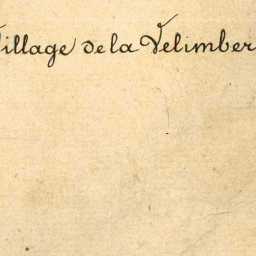 Village de la Velimber